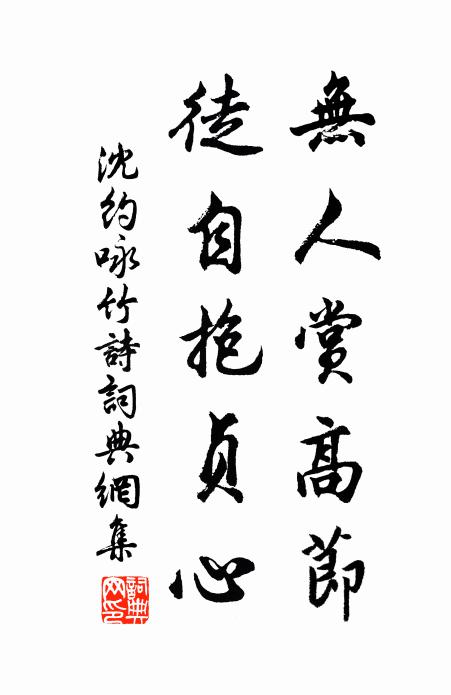 無人賞高節
徒自抱貞心
沈約咏竹詩詞典網集
詞典網印